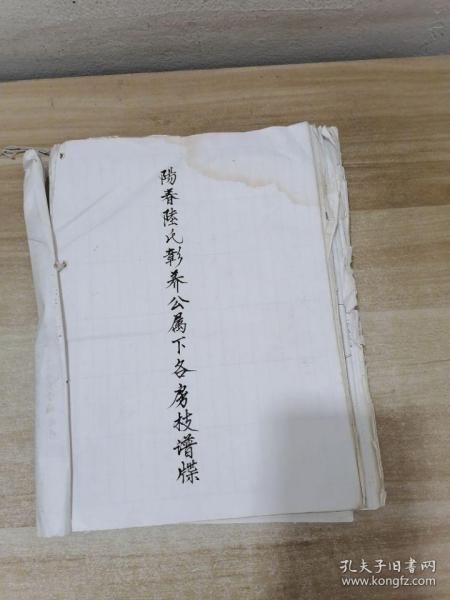 陽春陸氏彰乔公属下各房枝谱牒
孔夫子旧书网
www.kongfz.com